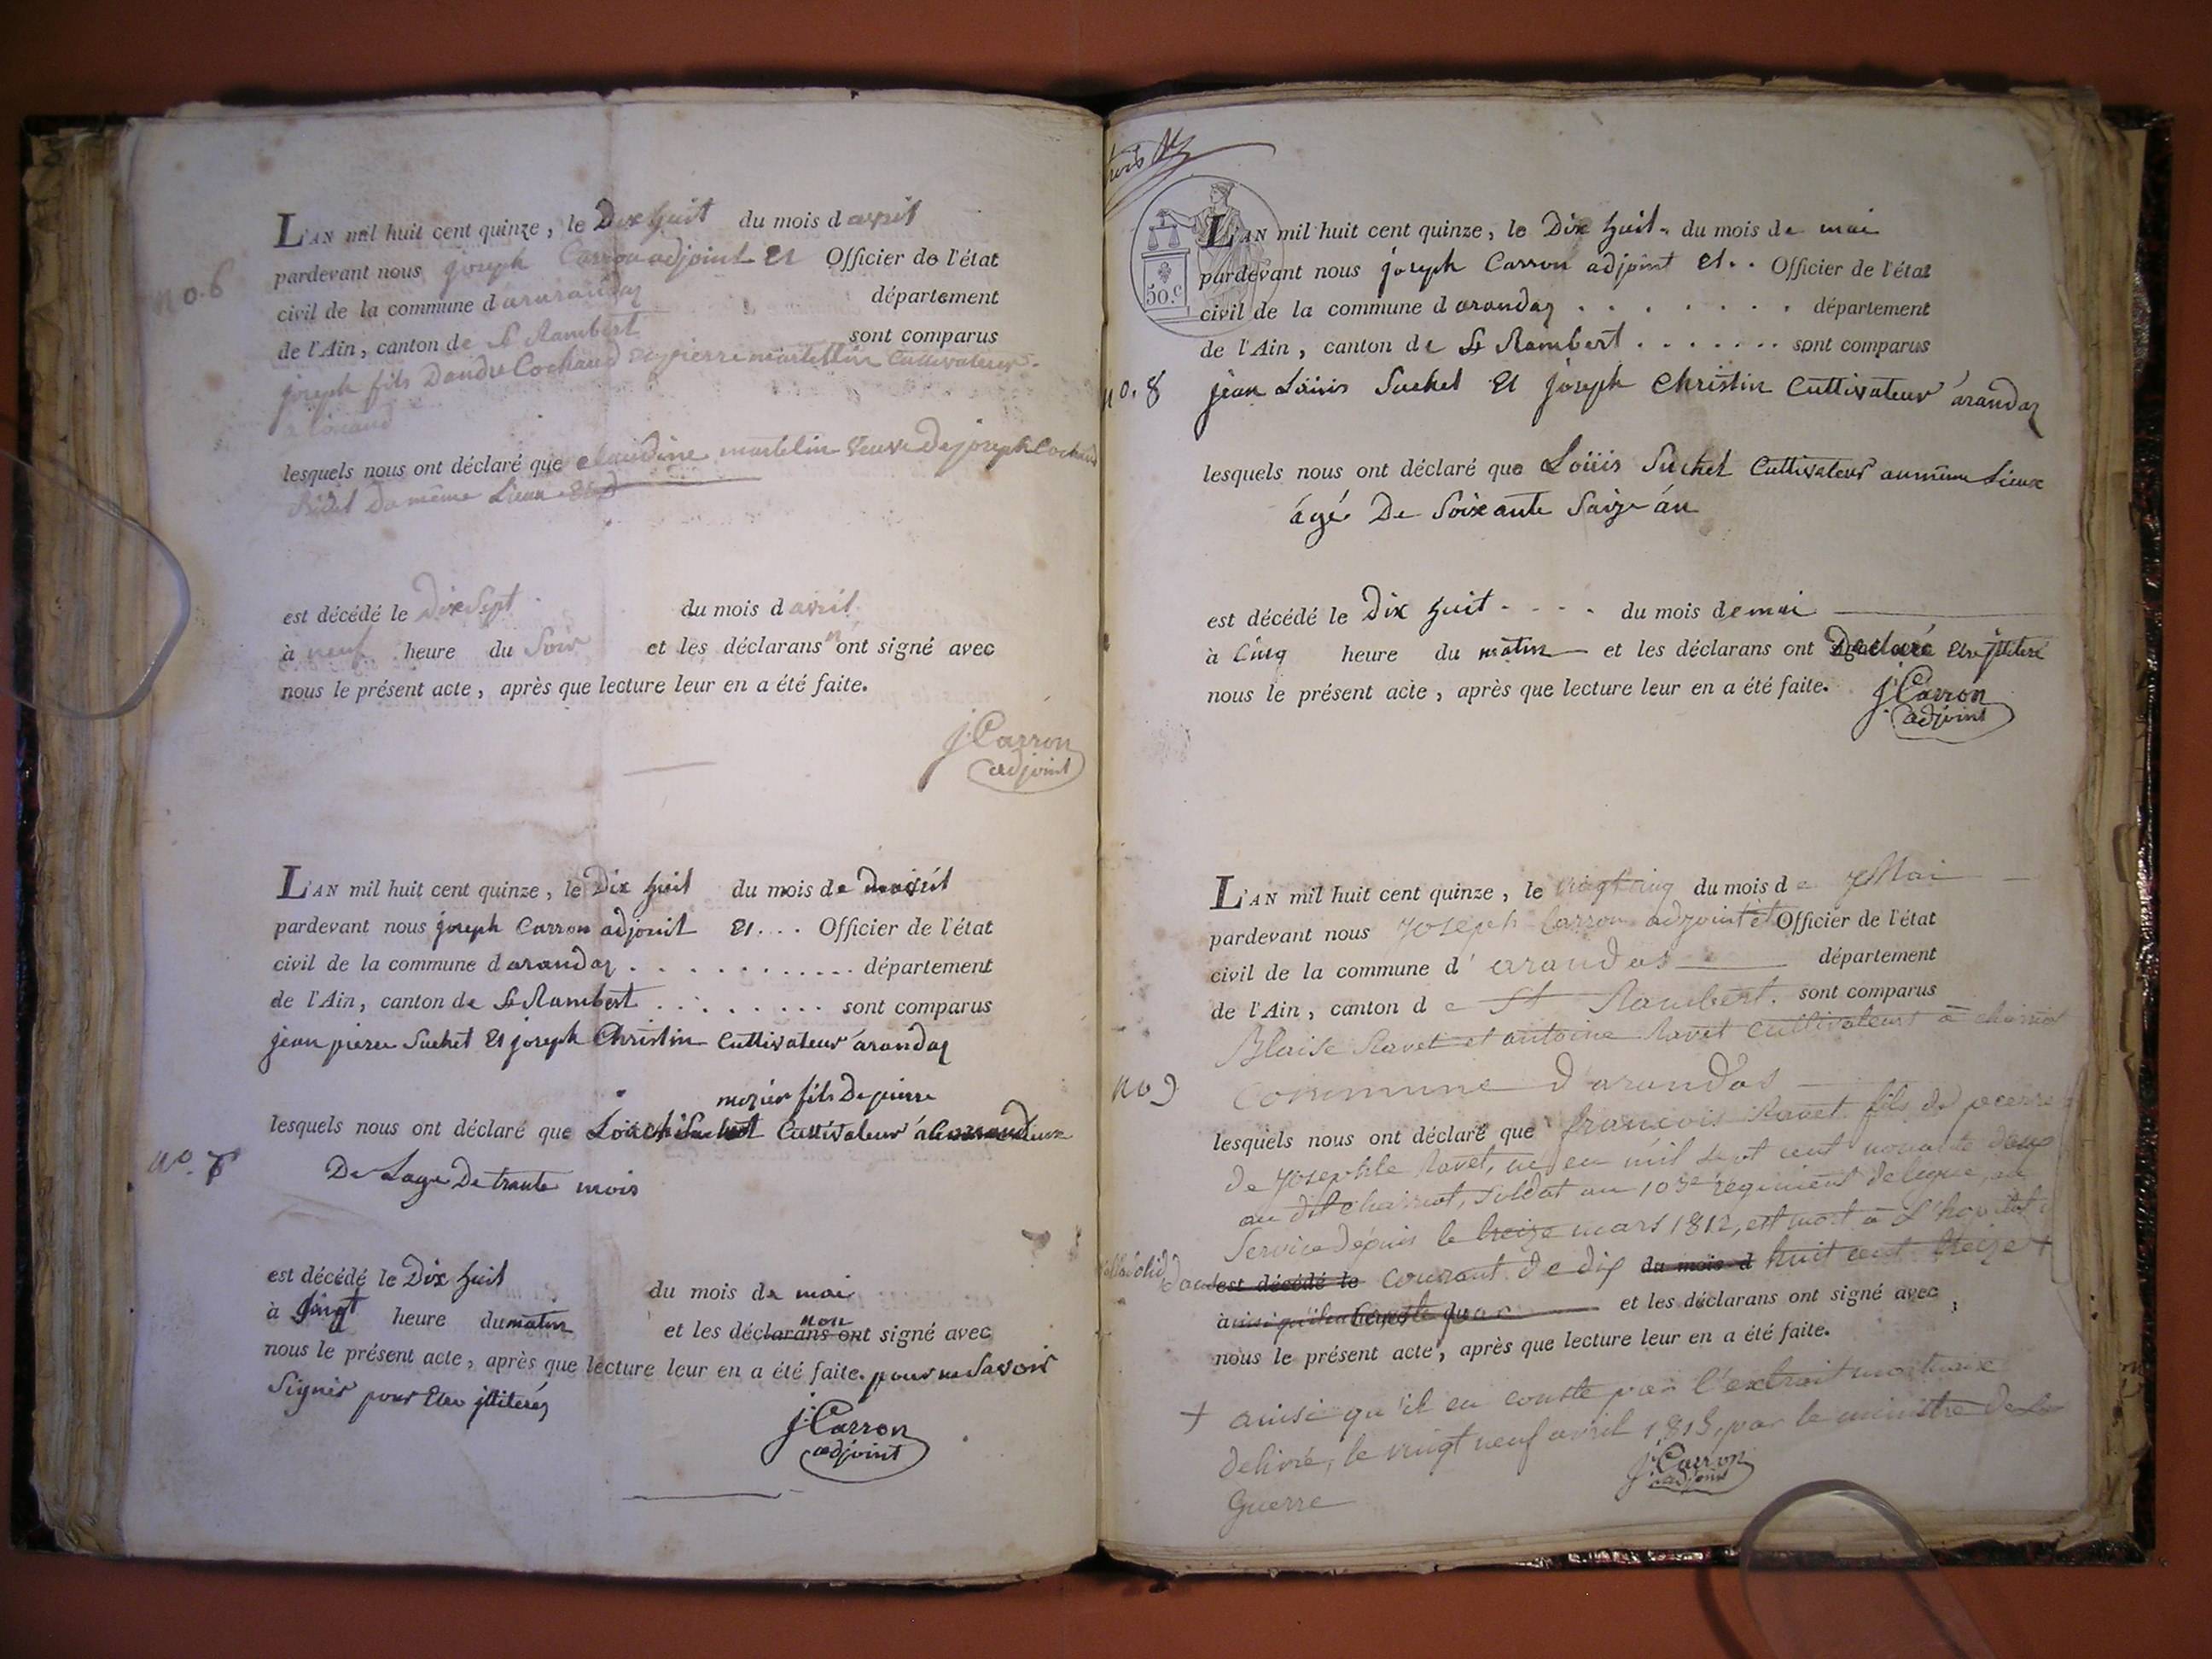 L'AN mil huit cent quinze, le Dix huit du mois d avril
pardevant nous joseph Carron adjoint Et Officier de l'état
no. 6
civil de la commune d département
de l'Ain, canton de St Rambert sont comparus
joseph fils Dandre Cochaud Et pierre martellin Cultivateurs
lesquels nous ont déclaré que claudine martelin veuve De joseph Cochaud
du même Lieux
est décédé le Dix Sept du mois d avril
à neuf heure du Soir et les déclarans n'ont signé avec
nous le présent acte, après que lecture leur en a été faite.
j. Carron
adjoint
L'AN mil huit cent quinze, le Dix huit du mois de
pardevant nous joseph Carron adjoint Et.... Officier de l'état
civil de la commune d arandaz département
de l'Ain, canton de St Rambert sont comparus
jean pierre Suchet Et joseph Christin Cultivateur árandaz
mozier fils De pierre
lesquels nous ont déclaré que Cultivateur
no. 7
De Lage De trante mois
est décédé le Dix huit du mois de mai
à heure du matin et les déclarans non ont signé avec
nous le présent acte, après que lecture leur en a été faite. pour ne Savoir
Signér pour Etre jlliterés
j. Carron
adjoint
50.c
L'AN mil huit cent quinze, le Dix huit du mois de mai
pardevant nous joseph Carron adjoint Et.. Officier de l'état
civil de la commune d arandaz département
de l'Ain, canton de St Rambert sont comparus
no. 8
jean Loüis Suchet Et joseph Christin Cultivateur árandaz
lesquels nous ont déclaré que Loüis Suchet Cultivateur au même Lieux
ágé De Soixante Saize án
est décédé le Dix huit du mois de mai
à Cinq heure du matin et les déclarans ont Declaré Etre jlliteré
nous le présent acte, après que lecture leur en a été faite.
j. Carron
adjoint
L'AN mil huit cent quinze, le vingt cinq du mois de Mai
pardevant nous Joseph Carron adjoint et Officier de l'état
civil de la commune d' arandas département
de l'Ain, canton de St Rambert. sont comparus
Blaise Ravet et antoine Ravet cultivateurs à
no 9
Commune d'arandas
lesquels nous ont déclaré que françois Ravet fils de pierre
de Josephte Ravet, né en mil sept cent nonante deux
au dit soldat au 103e régiment de ligne, au
Service depuis le treize mars 1812, est mort à L'hopital
est décédé le courant de dix du mois d huit cent treize +
à et les déclarans ont signé avec
nous le présent acte, après que lecture leur en a été faite.
+ ainsi qu'il en conste par l'extrait mortuaire
delivré, le vingt neuf avril 1815, par le ministre de la
Guerre
j. Carron
adjoint